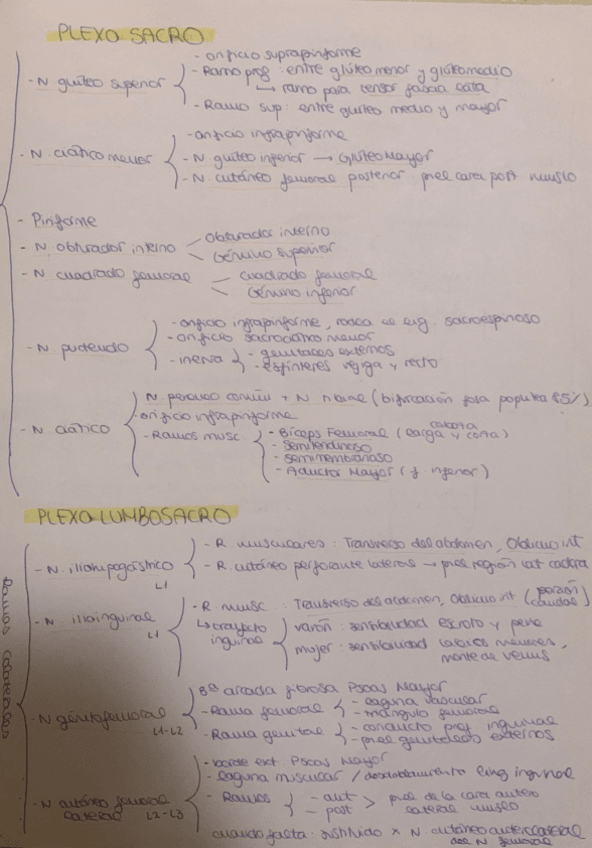 PLEXO SACRO
- N glúteo superior
- orificio suprapiriforme
- Ramo prof: entre glúteo menor y glúteo medio
↳ ramo para tensor fascia lata
- Ramo sup: entre glúteo medio y mayor
- N. ciático menor
- orificio infrapiriforme
- N glúteo inferior → Glúteo Mayor
- N. cutáneo femoral posterior: piel cara post muslo
- Piriforme
- N. obturador interno
Obturador interno
Gémino superior
- N cuadrado femoral
Cuadrado femoral
Gémino inferior
- N. pudendo
- orificio infrapiriforme, rodea el lig. sacroespinoso
- orificio sacrociático menor
- inerva
- genitales externos
- esfínteres vejiga y recto
- N. ciático
N peroneo común + N tibial (bifurcación fosa poplítea 85%)
- orificio infrapiriforme
- Ramos musc
- Bíceps Femoral (larga y corta)
cabeza
- Semitendinoso
- semimembranoso
- Aductor Mayor (f. inferior)
PLEXO LUMBOSACRO
Ramos colaterales
- N. iliohipogástrico
L1
- R musculares: Transverso del abdomen, Oblicuo int
- R. cutáneo perforante lateral → piel región lat cadera
- N ilioinguinal
L1
- R. musc: Transverso del abdomen, Oblicuo int (porción caudal)
↳ trayecto inguinal
varón: sensibilidad escroto y pene
mujer: sensibilidad labios menores,
monte de venus
- N génitofemoral
L1-L2
3ª arcada fibrosa Psoas Mayor
- Rama femoral
- laguna vascular
- triángulo femoral
- Rama genital
- conducto prof inguinal
- piel genitales externos
- N cutáneo femoral
lateral L2-L3
- borde ext. Psoas Mayor
- laguna muscular / desdoblamiento lig inguinal
- Ramos
- ant
- post
> piel de la cara antero
lateral muslo
cuando falta: sustituido x N. cutáneo anterolateral
del N femoral